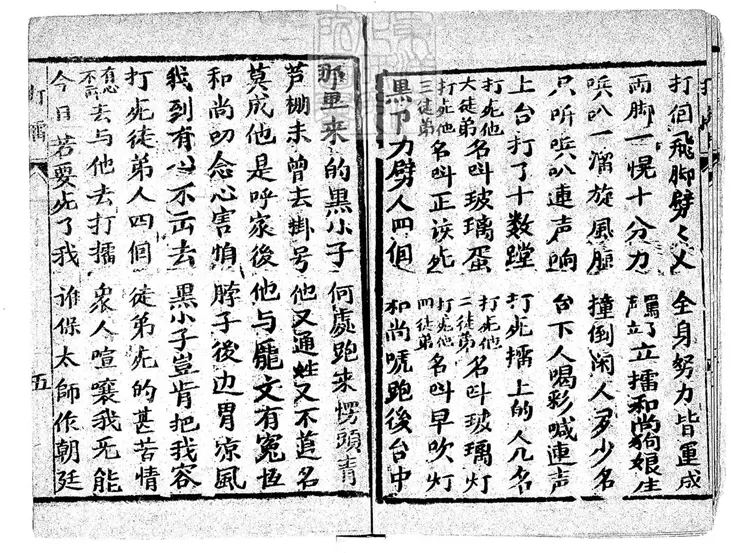 打個飛脚劈〻义 全身努力皆運成
兩脚一愰十分力 立擂和尚狗娘生
呠叭一溜旋風腿 撞倒闲人多少名
只听呠叭連声响 台下人喝彩喊連声
上台打了十数蹚 打死擂上的人几名
打死他大徒弟名叫玻璃蛋 打死他二徒弟名叫玻璃灯
打死他三徒弟名叫正该死 打死他四徒弟名叫早吹灯
黑下力劈人四個 和尚唬跑後台中
那里来的黑小子 何處跑来愣頭青
芦棚未曾去掛号 他又通姓又不道名
莫成他是呼家後 他与龐文有冤恆
和尚叨念心害怕 脖子後边冒凉風
我到有心不出去 黑小子豈肯把我容
打死徒弟人四個 徒弟死的甚苦情
有心不可去与他去打擂 衆人喧嚷我无能
今日若要死了我 谁保太師作朝廷
打擂
五